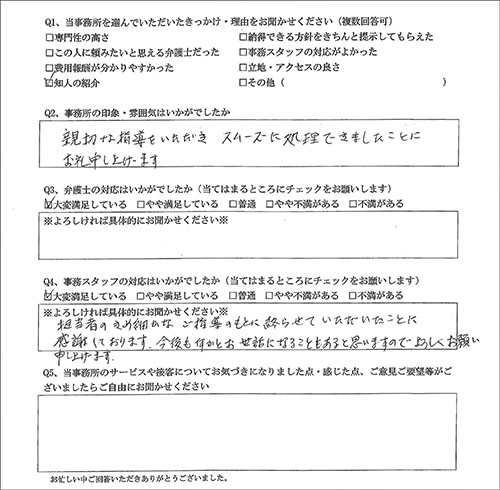 Q1、当事務所を選んでいただいたきっかけ・理由をお聞かせください（複数回答可）
□専門性の高さ □納得できる方針をきちんと提示してもらえた
□この人に頼みたいと思える弁護士だった □事務スタッフの対応がよかった
□費用報酬が分かりやすかった □立地・アクセスの良さ
☑知人の紹介 □その他（ ）
Q2、事務所の印象・雰囲気はいかがでしたか
親切な指導をいただき スムーズに処理できましたことに
お礼申し上げます
Q3、弁護士の対応はいかがでしたか（当てはまるところにチェックをお願いします）
☑大変満足している □やや満足している □普通 □やや不満がある □不満がある
※よろしければ具体的にお聞かせください※
Q4、事務スタッフの対応はいかがでしたか（当てはまるところにチェックをお願いします）
☑大変満足している □やや満足している □普通 □やや不満がある □不満がある
※よろしければ具体的にお聞かせください※
担当者のきめ細かなご指導のもとに終らせていただいたことに
感謝しております。今後も何かとお世話になることもあると思いますのでよろしくお願い
申し上げます。
Q5、当事務所のサービスや接客についてお気づきになりました点・感じた点、ご意見ご要望等がご
ざいましたらご自由にお聞かせください
お忙しい中ご回答いただきありがとうございました。